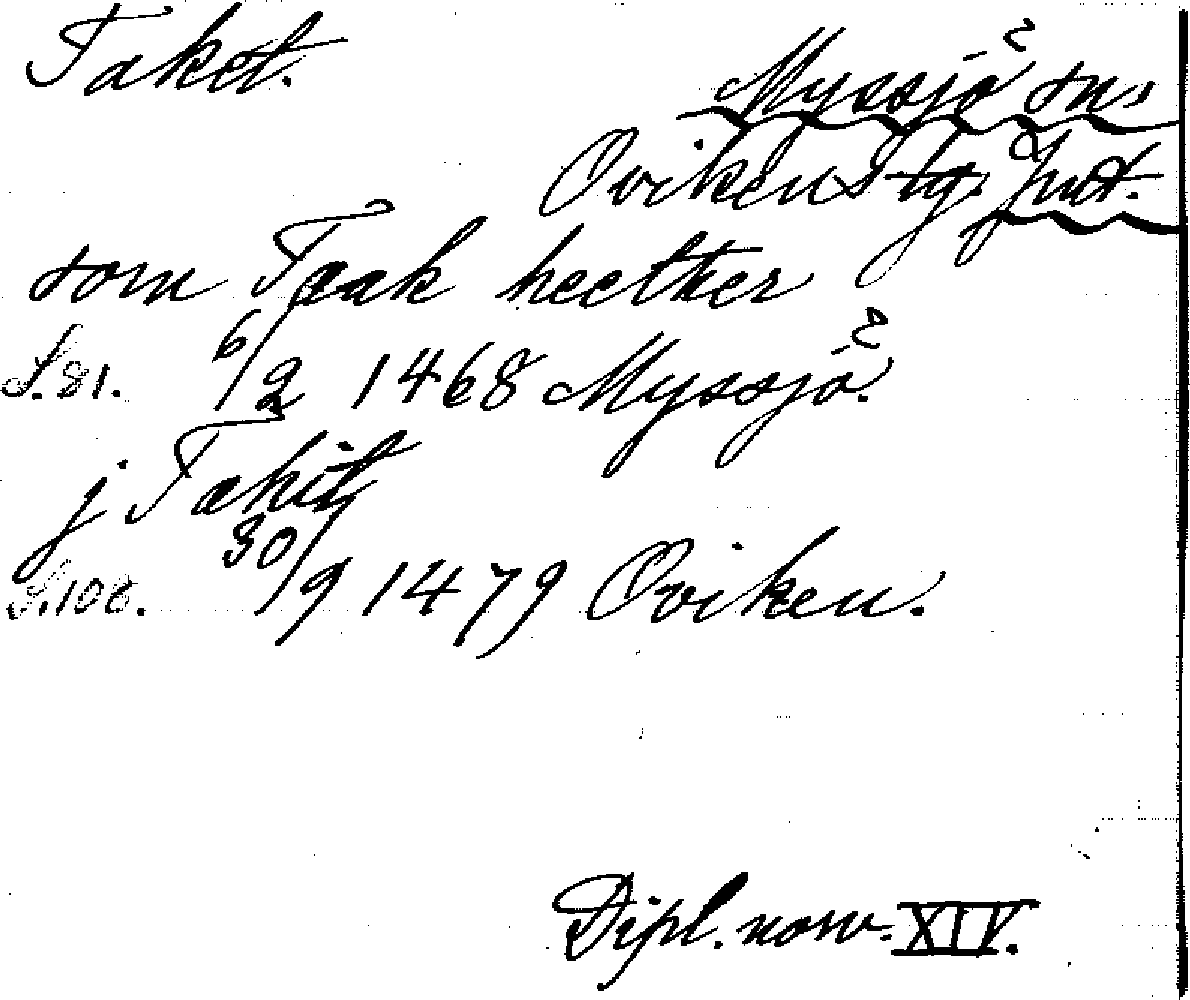 Taket.
Myssjö sn,
Ovikens tg. Jmt.
som Taak heether
S. 81. 6/2 1468 Myssjö.
j Takit
S. 108. 30/9 1479 Oviken.
Dipl. norv. XIV.